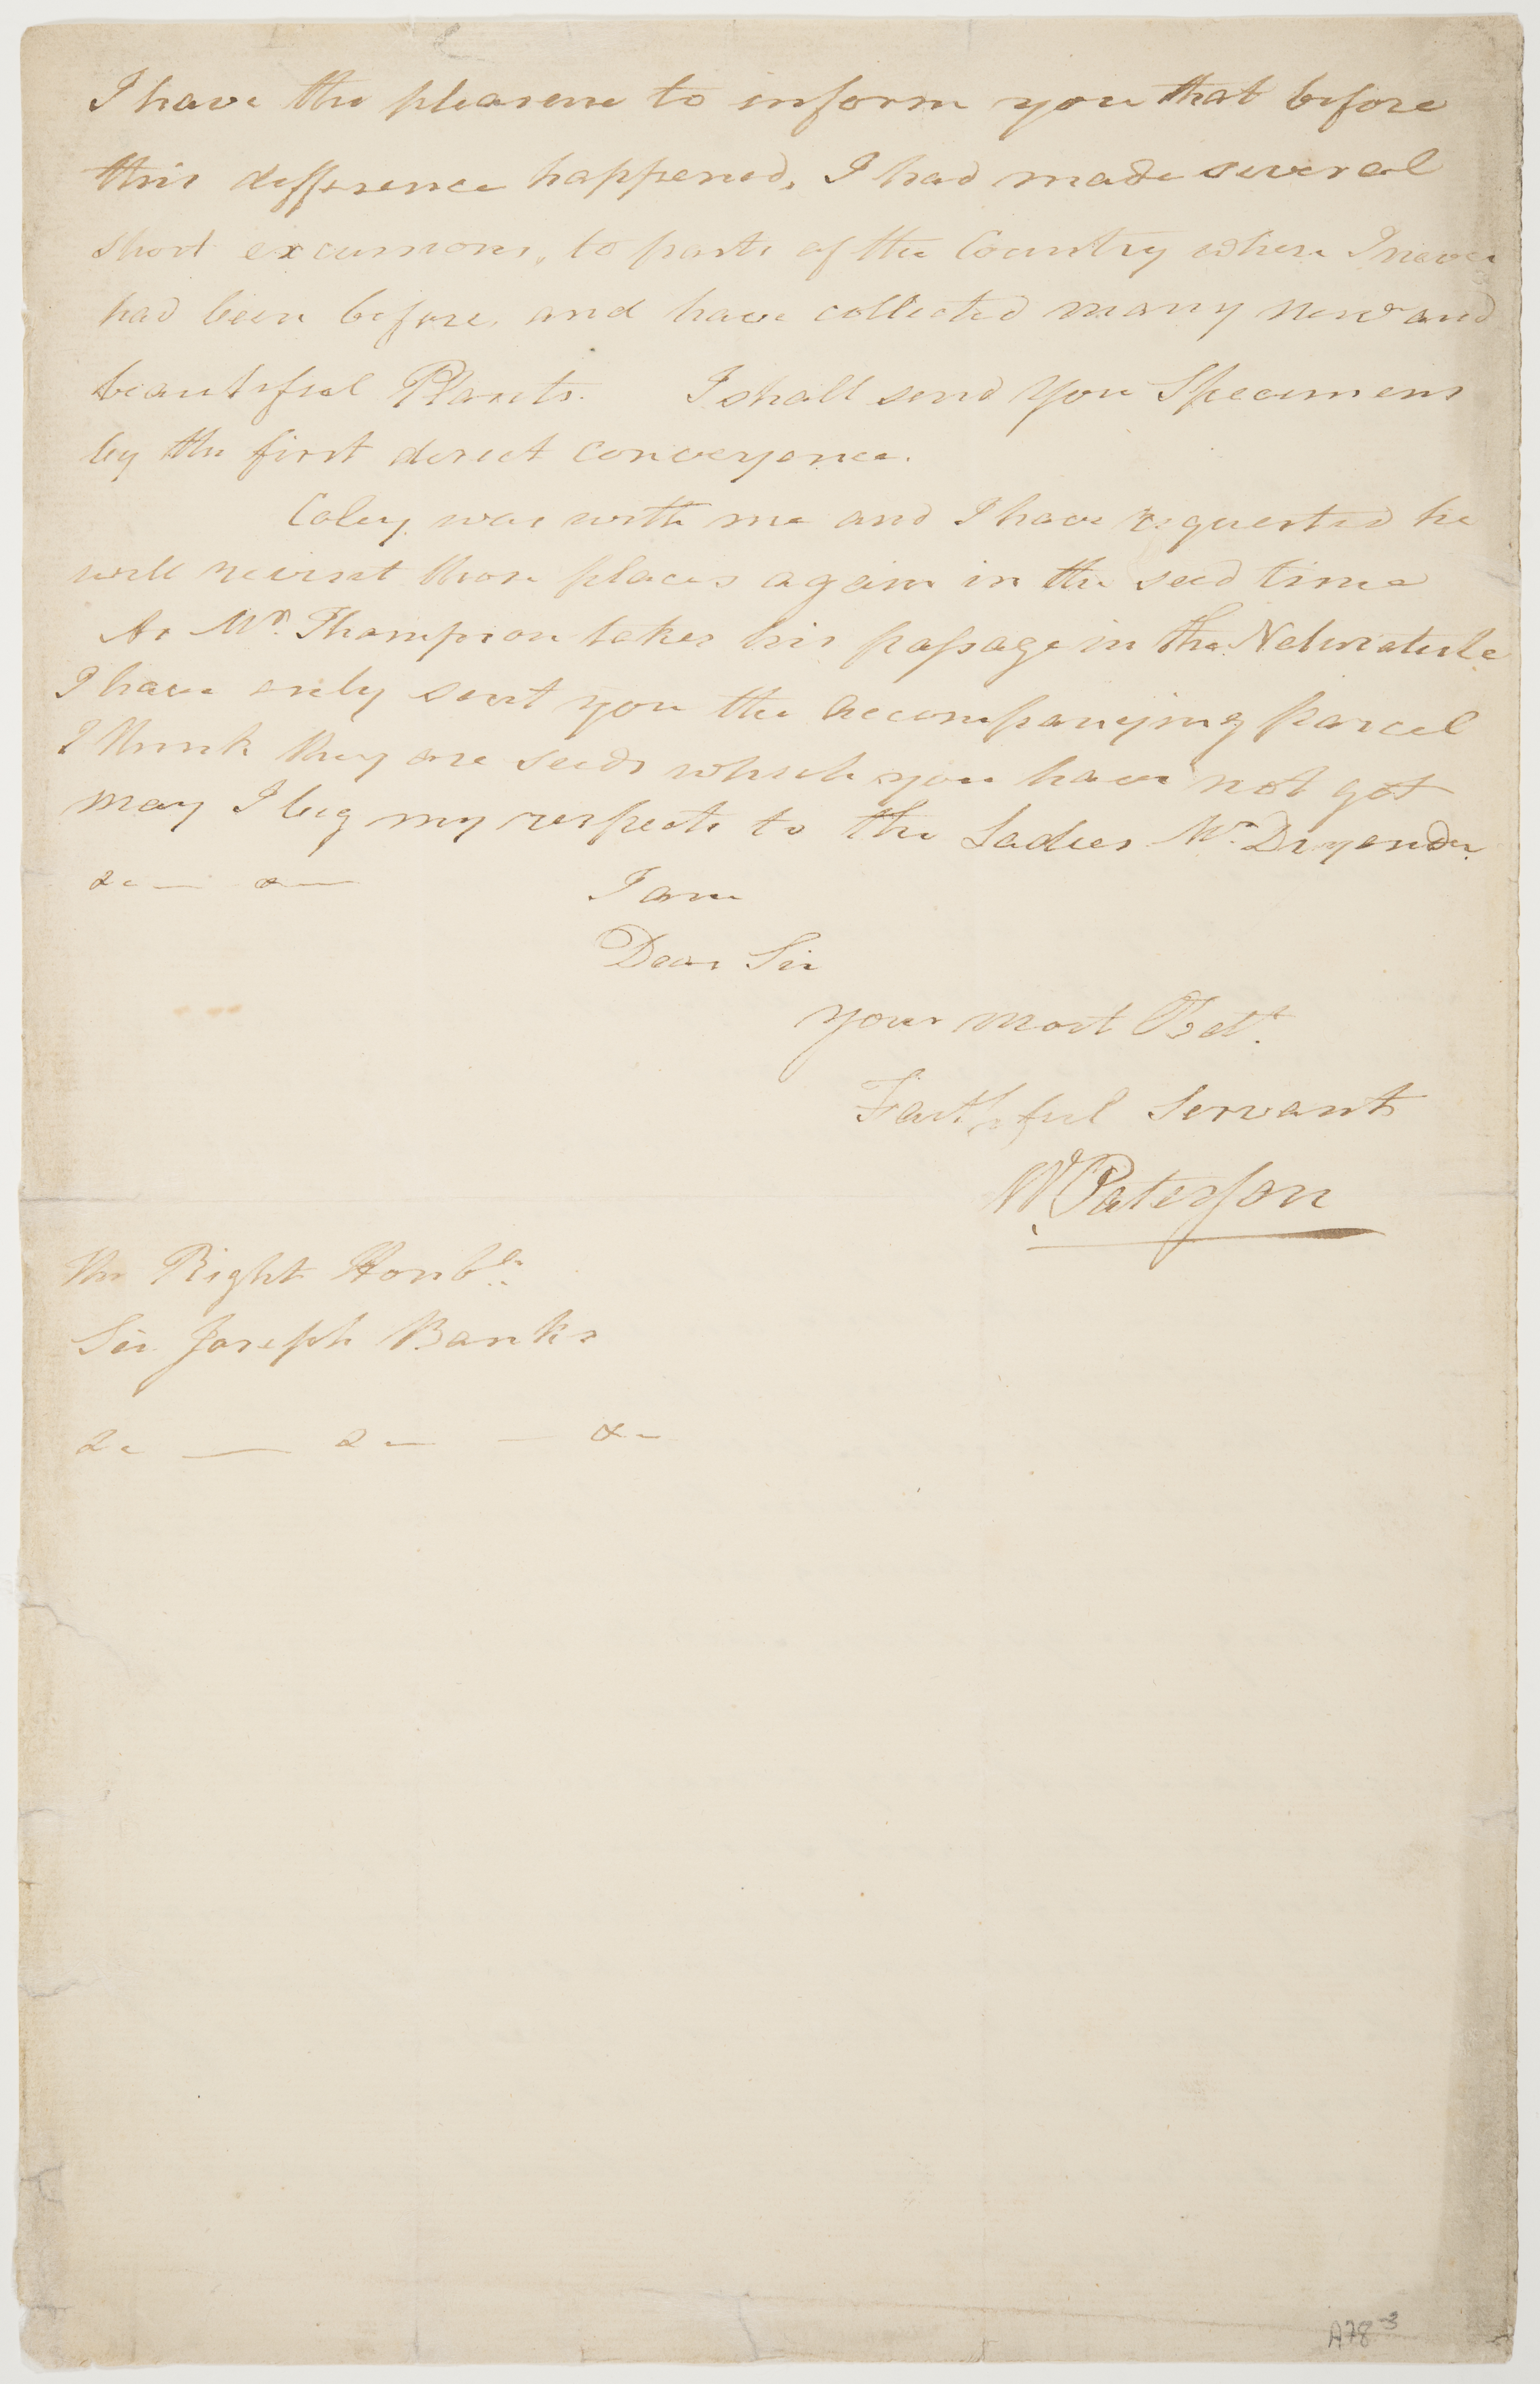 I have the pleasure to inform you that before
this difference happened, I had made several
short excursions, to parts of the Country where I never
had been before, and have collected many new and
beautiful Plants. I shall send you Specimens
by the first direct conveyance.
Caley, was with me and I have requested he
will revisit those places again in the seed time
As Mr. Thompson takes his passage in the
I have only sent you the accompanying parcel
I think they are seeds which you have not got
may I beg my respects to the Ladies Mr. Dryander
&c — &—
I am
Dear Sir
your most Obdt.
Faithful Servant
W. Paterson
The Right Honble.
Sir Joseph Banks
&c — &— — &-
A78-3